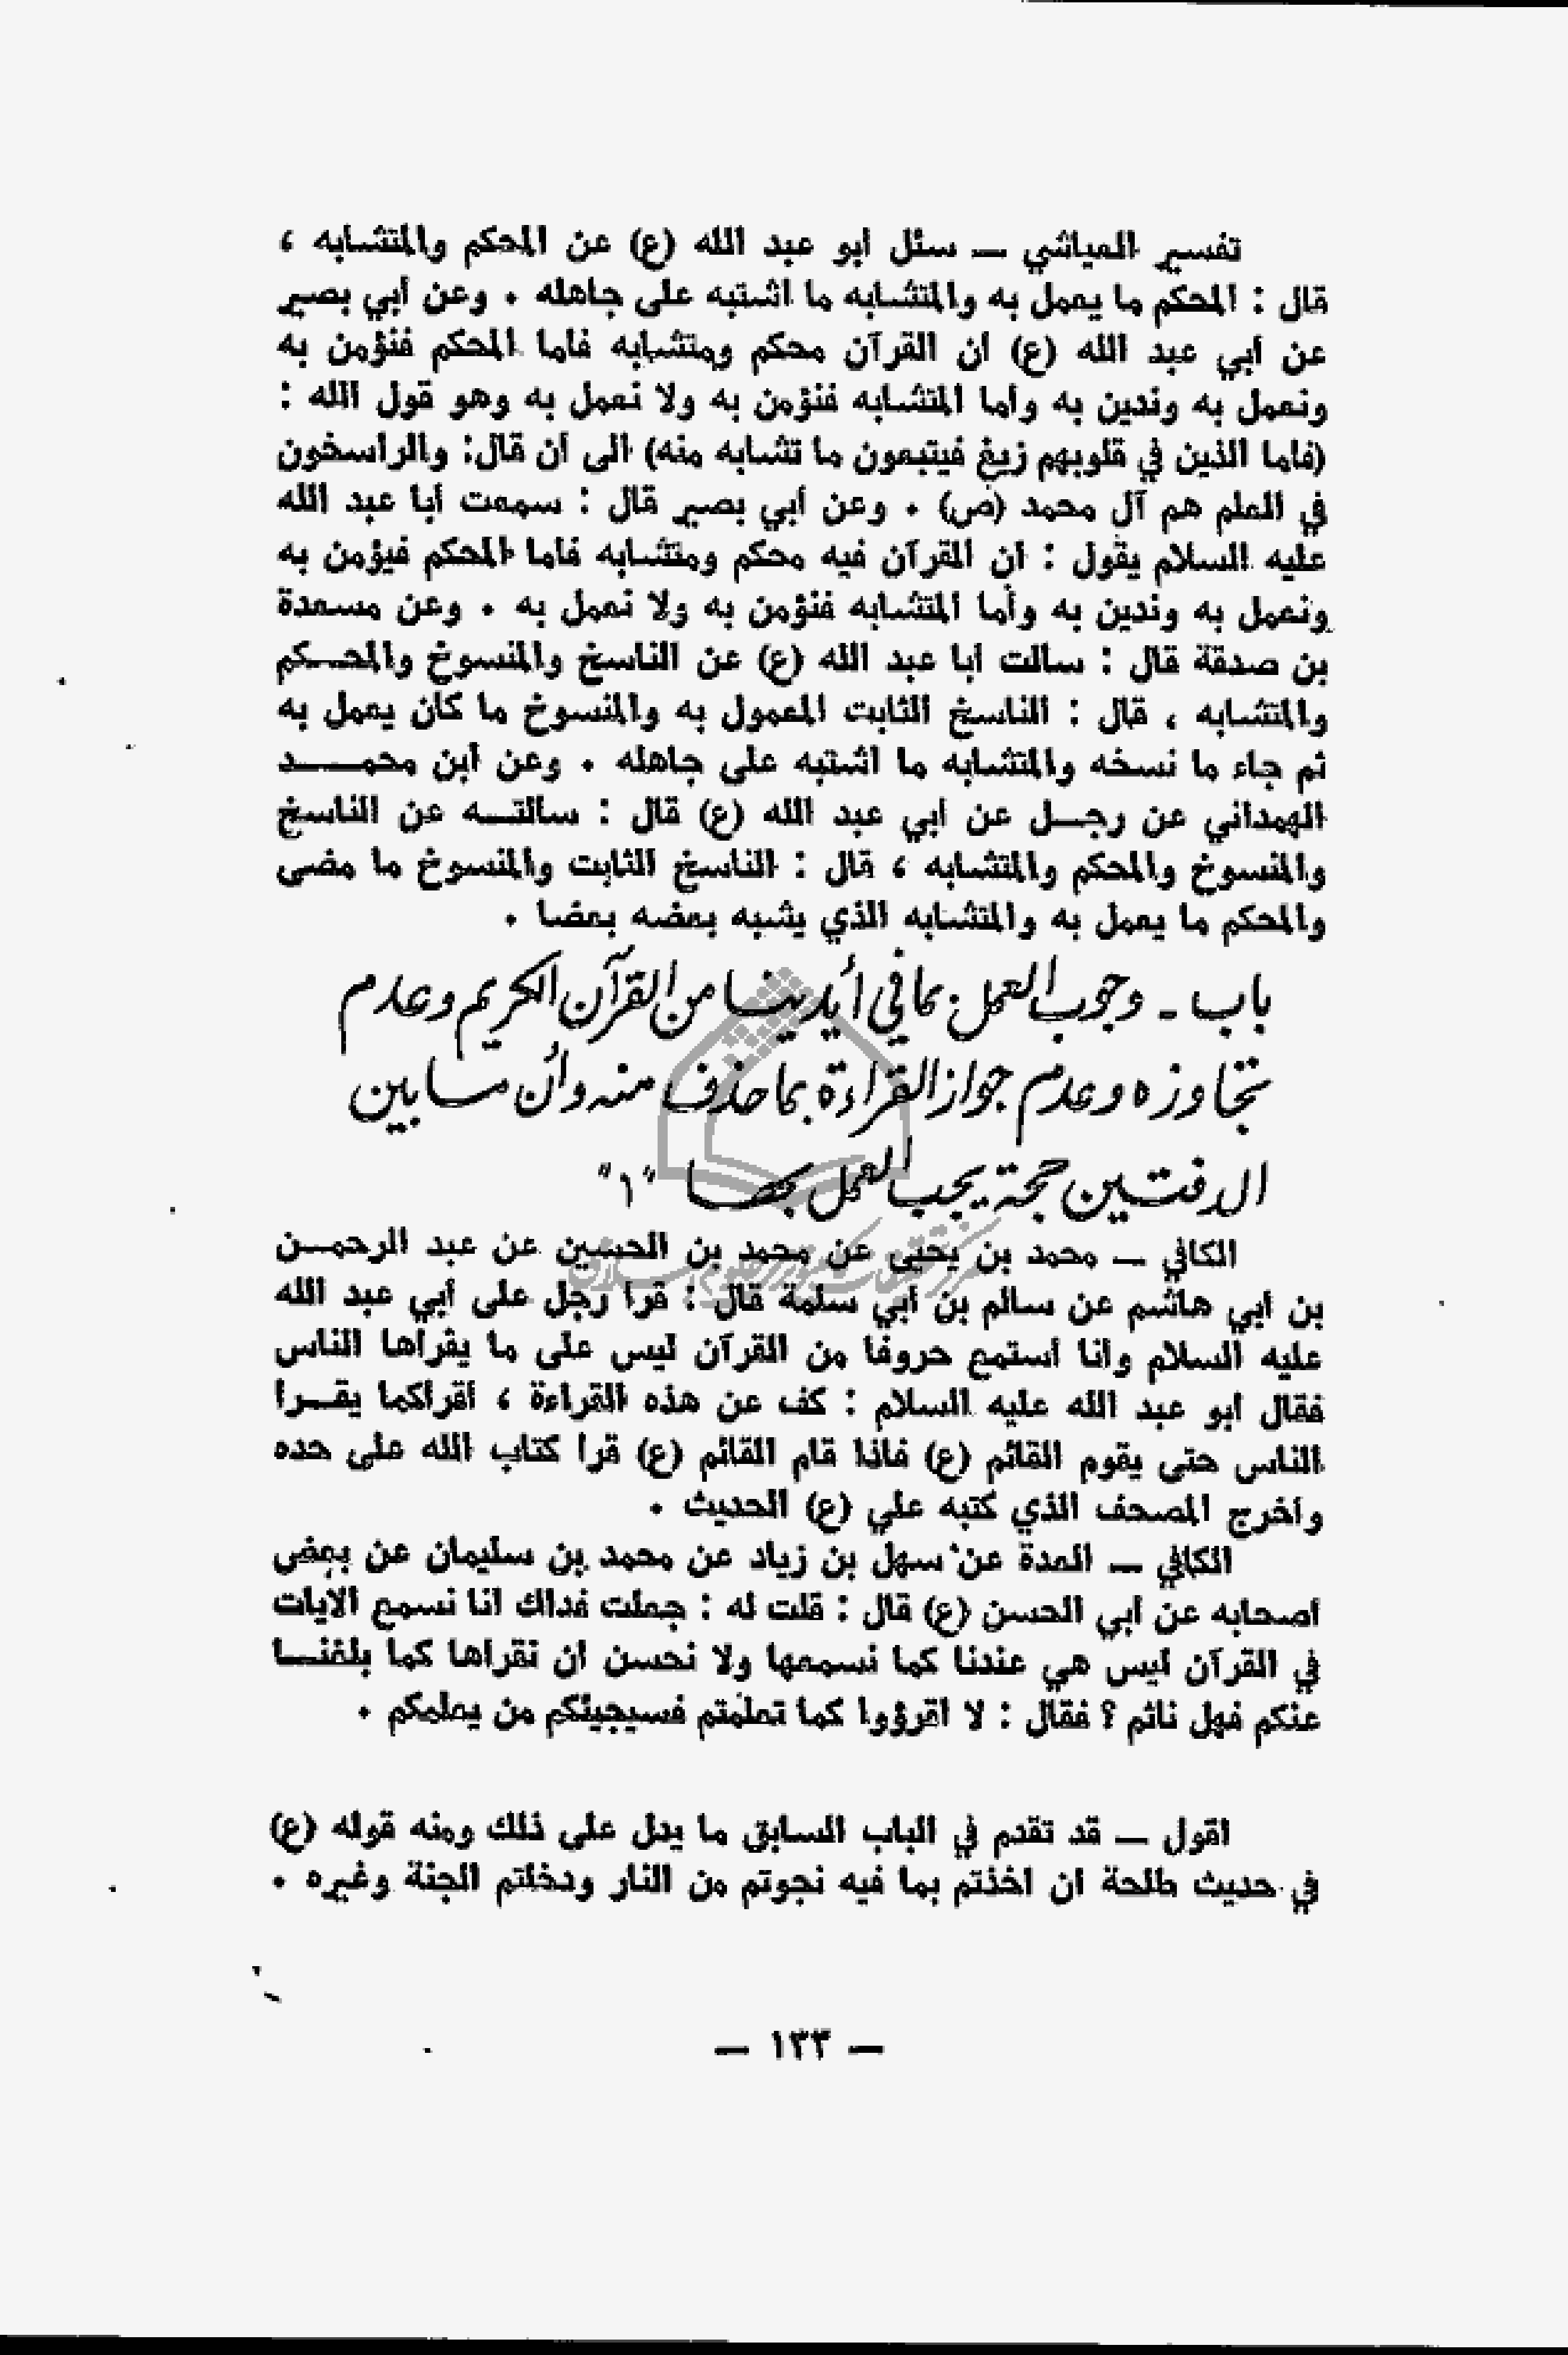 تفسير العياشي — سئل ابو عبد الله (ع) عن المحكم والمتشابه ،
قال : المحكم ما يعمل به والمتشابه ما اشتبه على جاهله . وعن أبي بصير
عن أبي عبد الله (ع) ان القرآن محكم ومتشابه فاما المحكم فنؤمن به
ونعمل به وندين به وأما المتشابه فنؤمن به ولا نعمل به وهو قول الله :
(فاما الذين في قلوبهم زيغ فيتبعون ما تشابه منه) الى أن قال: والراسخون
في العلم هم آل محمد (ص) . وعن أبي بصير قال : سمعت أبا عبد الله
عليه السلام يقول : ان القرآن فيه محكم ومتشابه فاما المحكم فيؤمن به
ونعمل به وندين به وأما المتشابه فنؤمن به ولا نعمل به . وعن مسعدة
بن صدقة قال : سالت ابا عبد الله (ع) عن الناسخ والمنسوخ والمحكم
والمتشابه ، قال : الناسخ الثابت المعمول به والمنسوخ ما كان يعمل به
ثم جاء ما نسخه والمتشابه ما اشتبه على جاهله . وعن ابن محمد
الهمداني عن رجل عن ابي عبد الله (ع) قال : سالته عن الناسخ
والمنسوخ والمحكم والمتشابه ، قال : الناسخ الثابت والمنسوخ ما مضى
والمحكم ما يعمل به والمتشابه الذي يشبه بعضه بعضا .
باب - وجوب العمل بما في أيدينا من القرآن الكريم وعدم
تجاوزه وعدم جواز القراءة بما حذف منه وأن ما بين
الدفتين حجة يجب العمل بها "١"
الكافي — محمد بن يحيى عن محمد بن الحسين عن عبد الرحمن
بن أبي هاشم عن سالم بن أبي سلمة قال : قرأ رجل على أبي عبد الله
عليه السلام وأنا أستمع حروفا من القرآن ليس على ما يقراها الناس
فقال ابو عبد الله عليه السلام : كف عن هذه القراءة ، اقراكما يقرا
الناس حتى يقوم القائم (ع) فاذا قام القائم (ع) قرا كتاب الله على حده
وأخرج المصحف الذي كتبه علي (ع) الحديث .
الكافي — العدة عن سهل بن زياد عن محمد بن سليمان عن بعض
أصحابه عن أبي الحسن (ع) قال : قلت له : جعلت فداك انا نسمع الايات
في القرآن ليس هي عندنا كما نسمعها ولا نحسن ان نقراها كما بلغنا
عنكم فهل ناثم ؟ فقال : لا اقرؤوا كما تعلمتم فسيجيئكم من يعلمكم .
اقول — قد تقدم في الباب السابق ما يدل على ذلك ومنه قوله (ع)
في حديث طلحة ان اخذتم بما فيه نجوتم من النار ودخلتم الجنة وغيره .
— ١٣٣ —